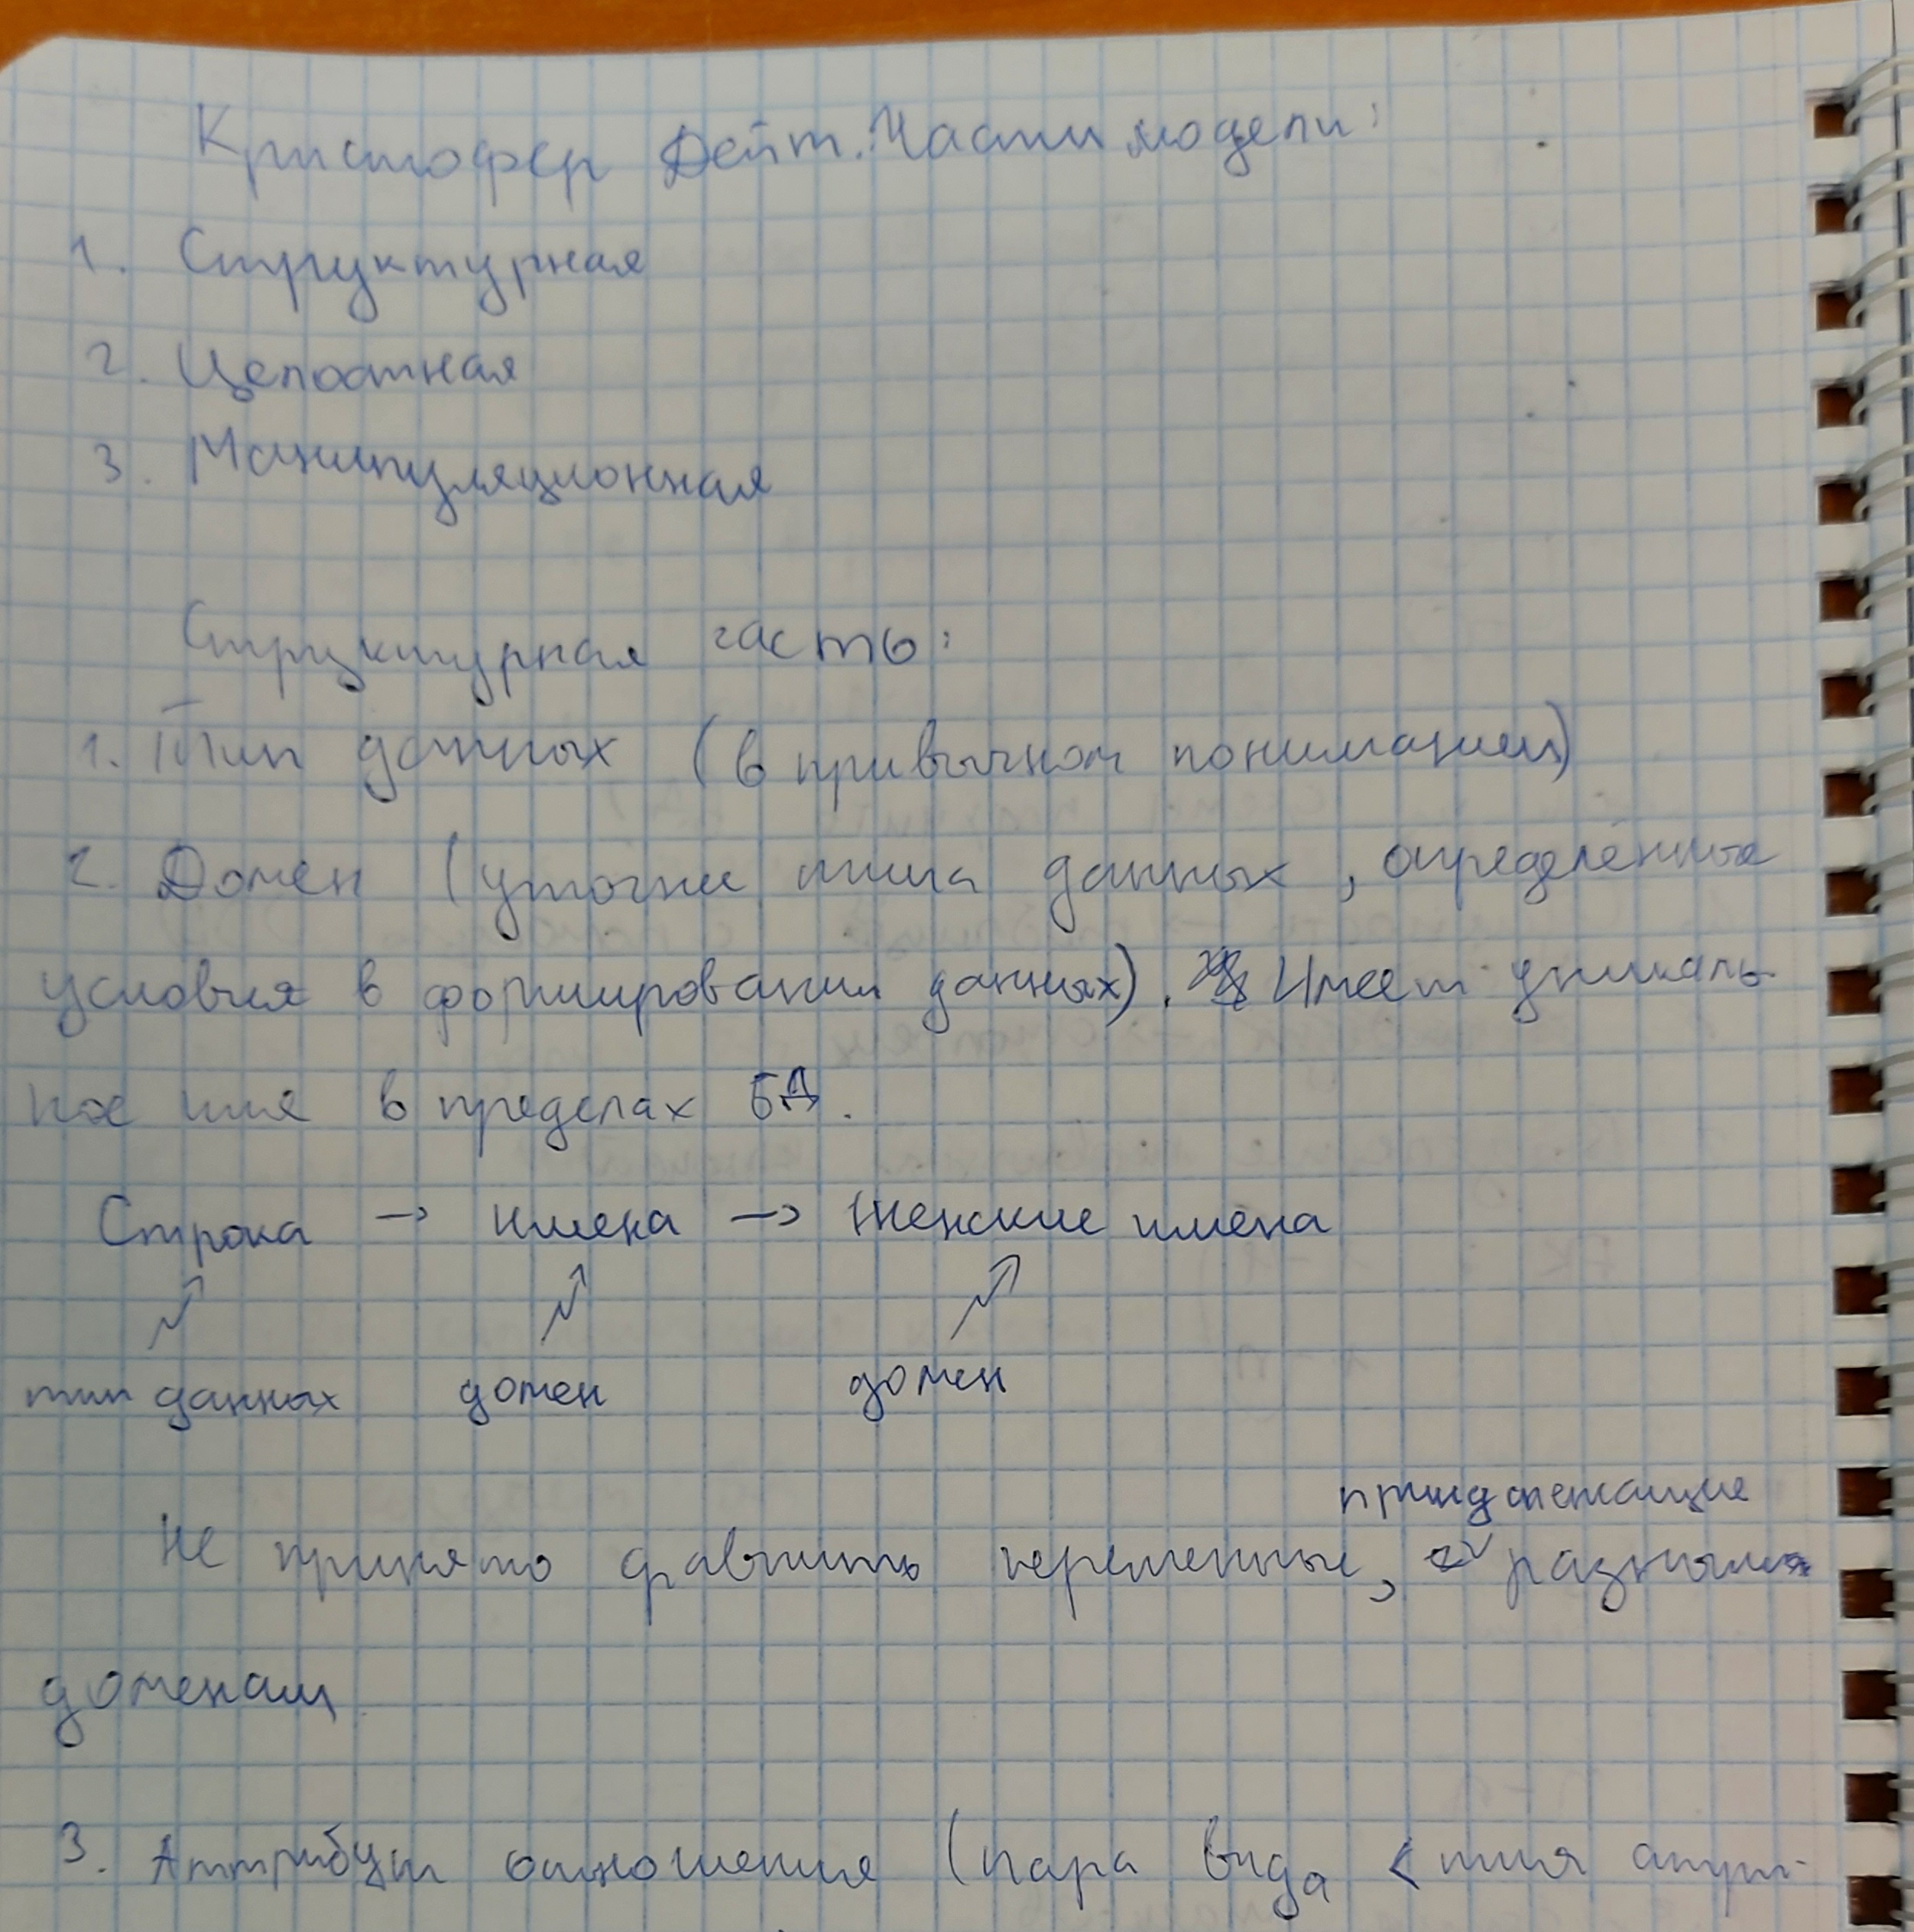 Кристофер Дейт. Части модели:
1. Структурная
2. Целостная
3. Манипуляционная
Структурная часть:
1. Тип данных (в привычном понимании)
2. Домен (уточне типа данных, определённые
условия в формировании данных). Имеет уникаль-
ное имя в пределах БД.
Строка → имена → женские имена
тип данных домен домен
принадлежащие
Не принято сравнить переменные, разным
доменам
3. Аттрибут отношения (пара вида <имя атри-